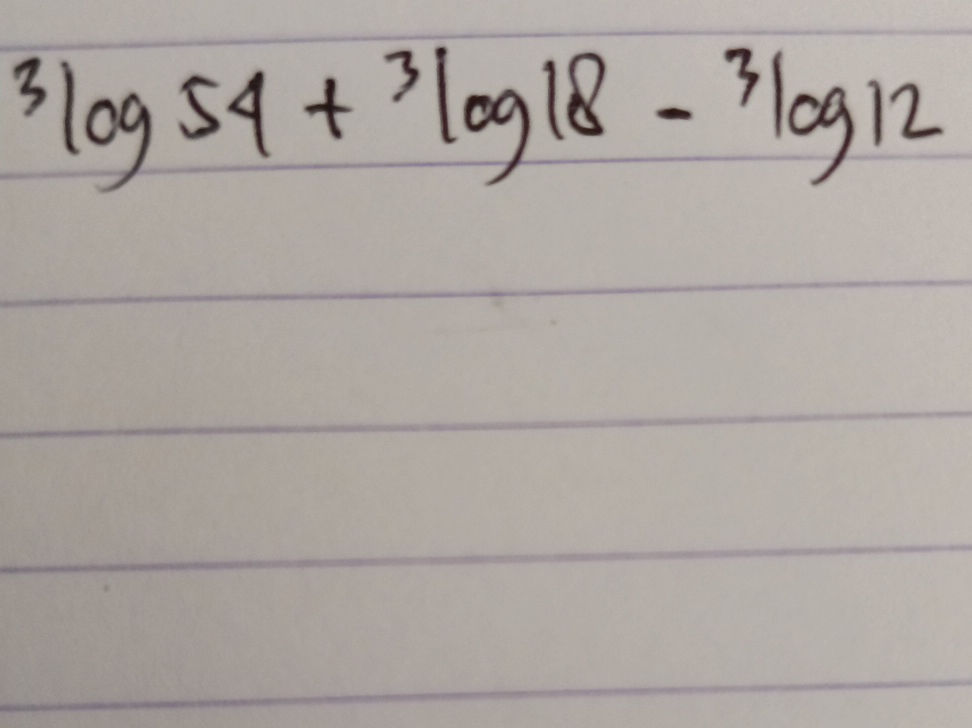 ³log 54 + ³log 18 - ³log 12